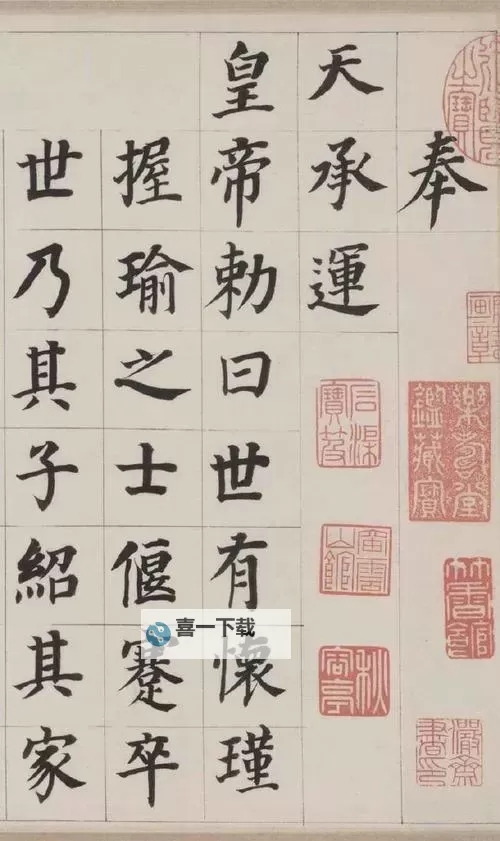 奉
天承運
皇帝勅曰世有懷瑾
握瑜之士偃蹇卒
世乃其子紹其家
樂壽堂鑑藏寶
喜一下载